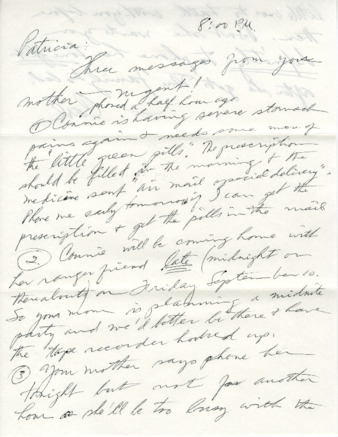 8:00 P.M.
Patricia:
Three messages from your
mother — urgent!
phoned a half hour ago
① Connie is having severe stomach
pains again & needs some more of
the "little green pills." The prescription
should be filled in the morning & the
medicine sent "air mail special delivery".
Phone me early tomorrow, I can get the
prescription & get the pills in the mail
② Connie will be coming home with
her ranger friend late (midnight or
thereabouts) on Friday September 10.
So your mom is planning a midnite
party and we'd better be there & have
the tape recorder hooked up.
③ Your mother says phone her
tonight but not for another
hour as she'll be too busy with the